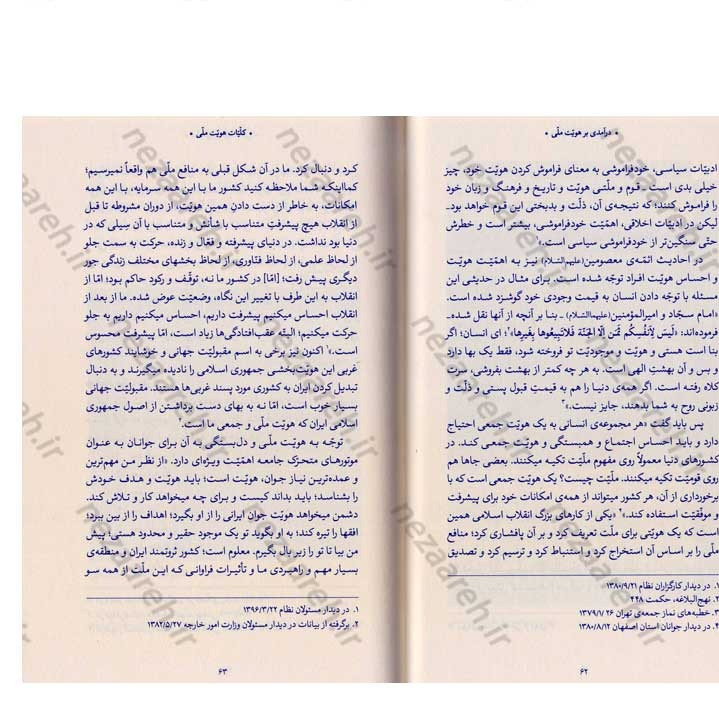 • درآمدی بر هویّت ملّی •
ادبیّات سیاسی، خودفراموشی به معنای فراموش کردن هویّت خود، چیز
خیلی بدی است ـ قوم و ملّتی هویّت و تاریخ و فرهنگ و زبان خود
را فراموش کنند؛ که نتیجه‌ی آن، ذلّت و بدبختی این قوم خواهد بود ـ
لیکن در ادبیّات اخلاقی، اهمّیّت خودفراموشی، بیشتر است و خطرش
حتّی سنگین‌تر از خودفراموشی سیاسی است.۱
در احادیث ائمّه‌ی معصومین(علیهم‌السّلام) نیز به اهمّیّت هویّت
و احساس هویّت افراد توجّه شده است. برای مثال در حدیثی این
مسئله با توجّه دادن انسان به قیمت وجودی خود گوشزد شده است.
«امام سجّاد و امیرالمؤمنین(علیهماالسّلام) ـ بنا بر آنچه از آنها نقل شده ـ
فرموده‌اند: «لَیسَ لِاَنفُسِکُم ثَمَنٌ اِلَّا الجَنَّةَ فَلاتَبیعُوها بِغَیرِها»؛ ای انسان! اگر
بنا است هستی و هویّت و موجودیّت تو فروخته شود، فقط یک بها دارد
و بس و آن بهشت الهی است. به هر چه کمتر از بهشت بفروشی، سرت
کلاه رفته است. اگر همه‌ی دنیا را هم به قیمتِ قبول پستی و ذلّت و
زبونی روح به شما بدهند، جایز نیست.»۳
پس باید گفت «هر مجموعه‌ی انسانی به یک هویّت جمعی احتیاج
دارد و باید احساس اجتماع و همبستگی و هویّت جمعی کند. در
کشورهای دنیا معمولاً روی مفهوم ملّیّت تکیه میکنند. بعضی جاها هم
روی قومیّت تکیه میکنند. ملّیّت چیست؟ یک هویّت جمعی است که با
برخورداری از آن، هر کشور میتواند از همه‌ی امکانات خود برای پیشرفت
و موفّقیّت استفاده کند.»۴ «یکی از کارهای بزرگ انقلاب اسلامی همین
است که یک هویّتی برای ملّت تعریف کرد و بر آن پافشاری کرد؛ منافع
ملّی را بر اساس آن استخراج کرد و استنباط کرد و ترسیم کرد و تصدیق
۱. در دیدار کارگزاران نظام ۱۳۸۰/۹/۲۱
۲. نهج‌البلاغه، حکمت ۴۲۸
۳. خطبه‌های نماز جمعه‌ی تهران ۱۳۷۹/۱/۲۶
۴. در دیدار جوانان استان اصفهان ۱۳۸۰/۸/۱۲
۶۲
• کلّیّات هویّت ملّی •
کرد و دنبال کرد. ما در آن شکل قبلی به منافع ملّی هم واقعاً نمیرسیم؛
کمااینکه شما ملاحظه کنید کشور ما با این همه سرمایه، با این همه
امکانات، به خاطر از دست دادنِ همین هویّت، از دوران مشروطه تا قبل
از انقلاب هیچ پیشرفتِ متناسب با شأنش و متناسب با آن سِیلی که در
دنیا بود نداشت. در دنیای پیشرفته و فعّال و زنده، حرکت به سمت جلو
از لحاظ علمی، از لحاظ فنّاوری، از لحاظ بخشهای مختلف زندگی جور
دیگری پیش رفت؛ [امّا] در کشور ما نه، توقّف و رکود حاکم بود؛ امّا از
انقلاب به این طرف با تغییر این نگاه، وضعیّت عوض شده. ما از بعد از
انقلاب احساس میکنیم پیشرفت داریم، احساس میکنیم داریم به جلو
حرکت میکنیم؛ البتّه عقب‌افتادگی‌ها زیاد است، امّا پیشرفت محسوس
است.»۱ اکنون نیز برخی به اسم مقبولیّت جهانی و خوشایند کشورهای
غربی این هویّت‌بخشی جمهوری اسلامی را نادیده میگیرند و به دنبال
تبدیل کردن ایران به کشوری مورد پسند غربی‌ها هستند. مقبولیّت جهانی
بسیار خوب است، امّا نه به بهای دست برداشتن از اصول جمهوری
اسلامی ایران که هویّت ملّی و جمعی ما است.۲
توجّه به هویّت ملّی و دل‌بستگی به آن برای جوانان به عنوان
موتورهای متحرّک جامعه اهمّیّت ویژه‌ای دارد. «از نظر من مهم‌ترین
و عمده‌ترین نیاز جوان، هویّت است؛ باید هویّت و هدف خودش
را بشناسد؛ باید بداند کیست و برای چه میخواهد کار و تلاش کند.
دشمن میخواهد هویّت جوان ایرانی را از او بگیرد؛ اهداف را از بین ببرد؛
افقها را تیره کند؛ به او بگوید تو یک موجود حقیر و محدود هستی؛ پیش
من بیا تا تو را زیر بال بگیرم. معلوم است؛ کشور ثروتمند ایران و منطقه‌ی
بسیار مهم و راهبردی ما و تأثیرات فراوانی که این ملّت از همه سو
۱. در دیدار مسئولان نظام ۱۳۹۶/۳/۲۲
۲. برگرفته از بیانات در دیدار مسئولان وزارت امور خارجه ۱۳۸۲/۵/۲۷
۶۳
nezaareh.ir